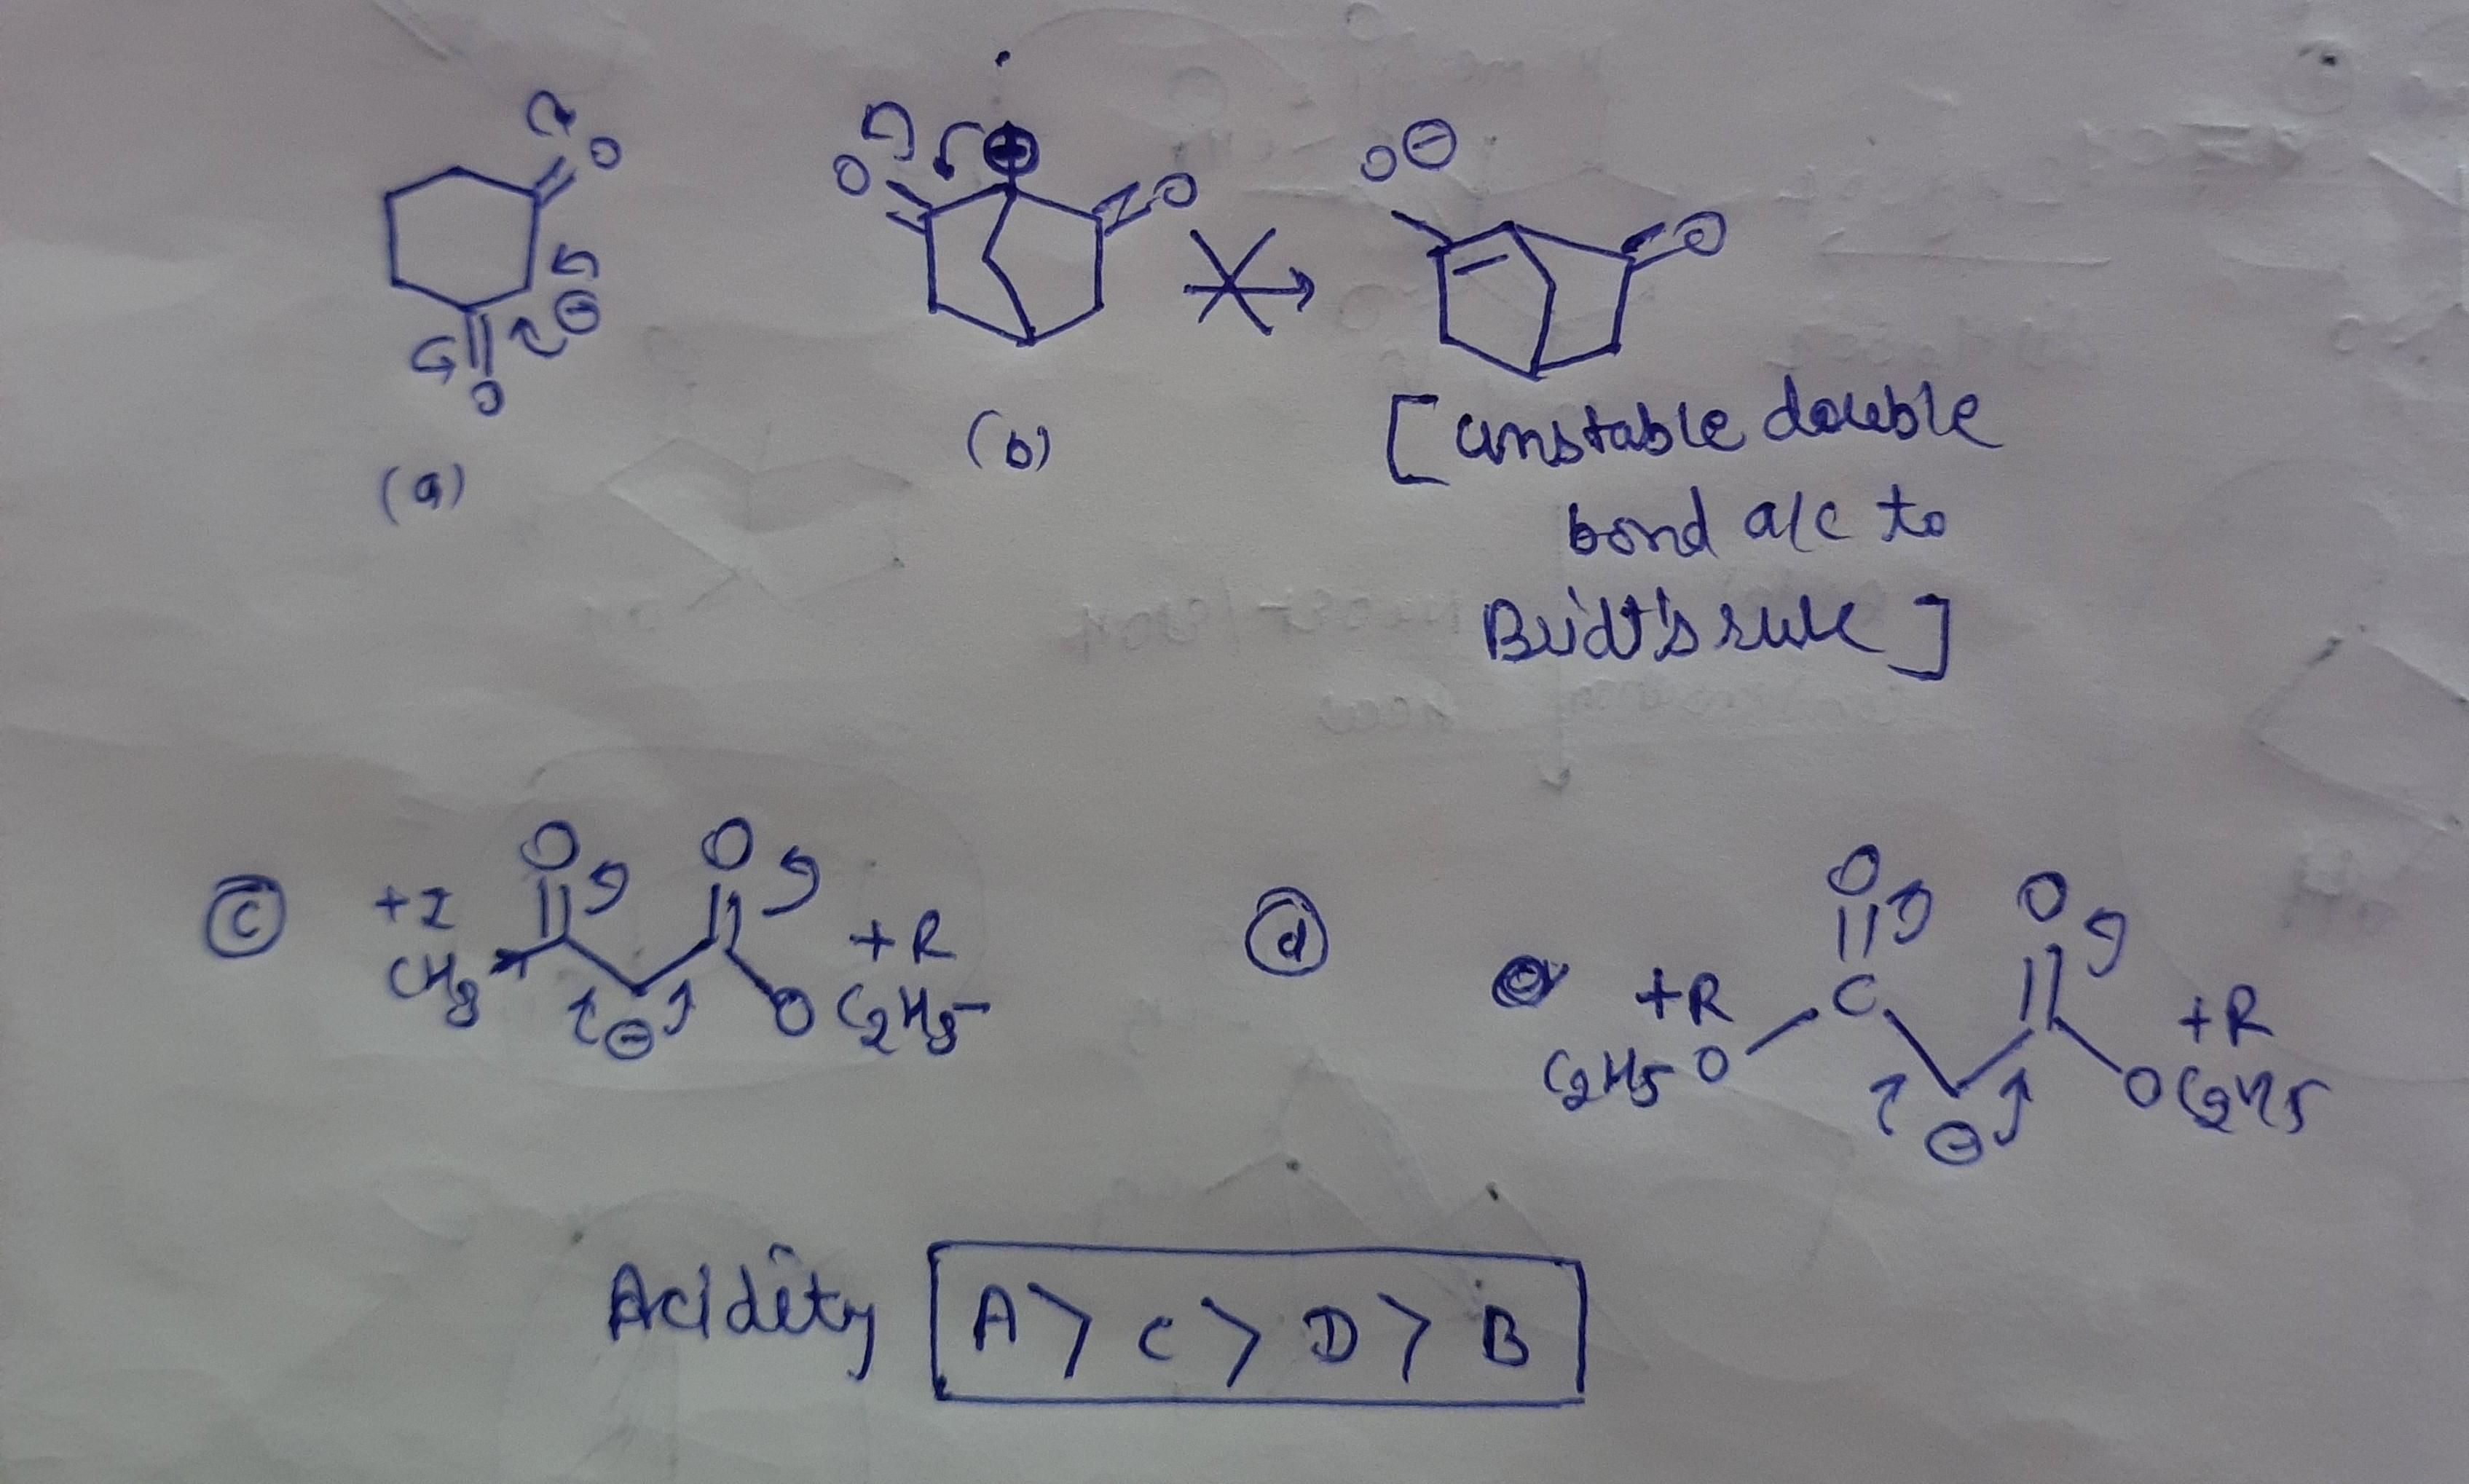 O
O
(a)
O ⊕ O
(b)
O ⊖ O
[unstable double
bond a/c to
Bridt's rule]
ⓒ +I CH3 O O +R OC2H5
⊖
ⓓ +R C2H5O C O O +R OC2H5
⊖
Acidity A > C > D > B